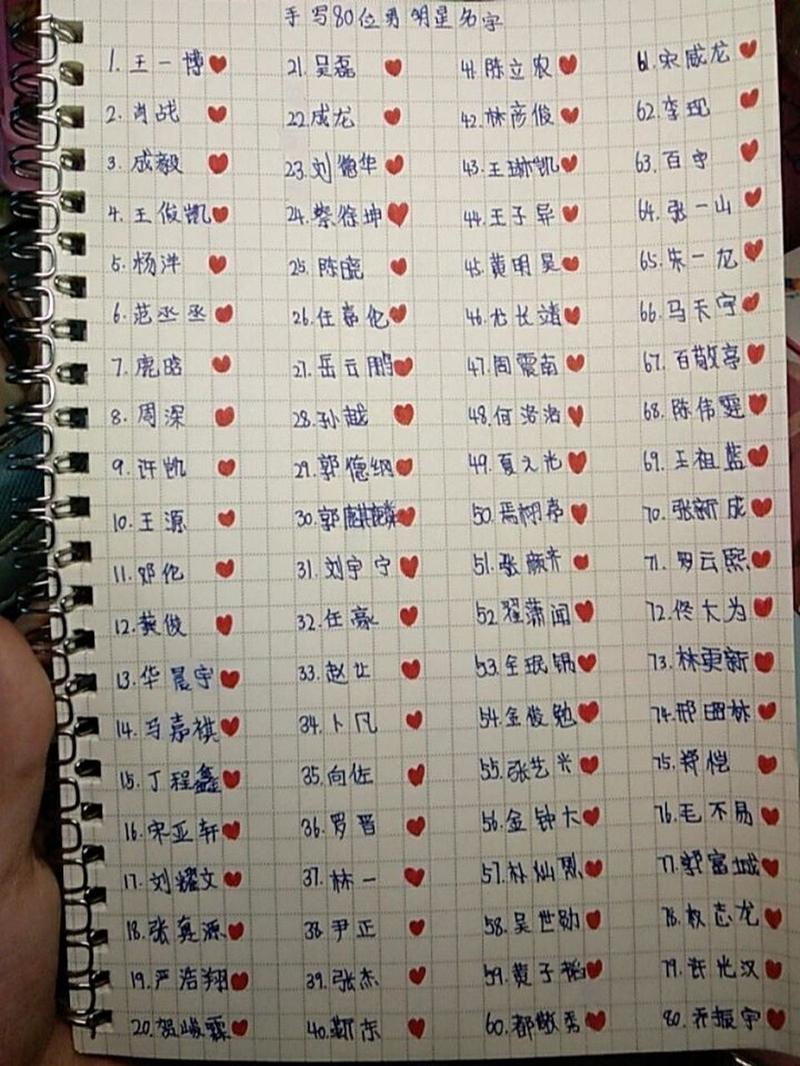 手写80位男明星名字
1. 王一博
2. 肖战
3. 成毅
4. 王俊凯
5. 杨洋
6. 范丞丞
7. 鹿晗
8. 周深
9. 许凯
10. 王源
11. 邓伦
12. 龚俊
13. 华晨宇
14. 马嘉祺
15. 丁程鑫
16. 宋亚轩
17. 刘耀文
18. 张真源
19. 严浩翔
20. 贺峻霖
21. 吴磊
22. 成龙
23. 刘德华
24. 蔡徐坤
25. 陈晓
26. 任嘉伦
27. 岳云鹏
28. 孙越
29. 郭德纲
30. 郭麒麟
31. 刘宇宁
32. 任豪
33. 赵让
34. 卜凡
35. 向佐
36. 罗晋
37. 林一
38. 尹正
39. 张杰
40. 靳东
41. 陈立农
42. 林彦俊
43. 王琳凯
44. 王子异
45. 黄明昊
46. 尤长靖
47. 周震南
48. 何洛洛
49. 夏之光
50. 焉栩嘉
51. 张颜齐
52. 翟潇闻
53. 金珉锡
54. 金俊勉
55. 张艺兴
56. 金钟大
57. 朴灿烈
58. 吴世勋
59. 黄子韬
60. 都敬秀
61. 宋威龙
62. 李现
63. 白宇
64. 张一山
65. 朱一龙
66. 马天宇
67. 白敬亭
68. 陈伟霆
69. 王祖蓝
70. 张新成
71. 罗云熙
72. 佟大为
73. 林更新
74. 邢昭林
75. 郑恺
76. 毛不易
77. 郭富城
78. 权志龙
79. 许光汉
80. 乔振宇